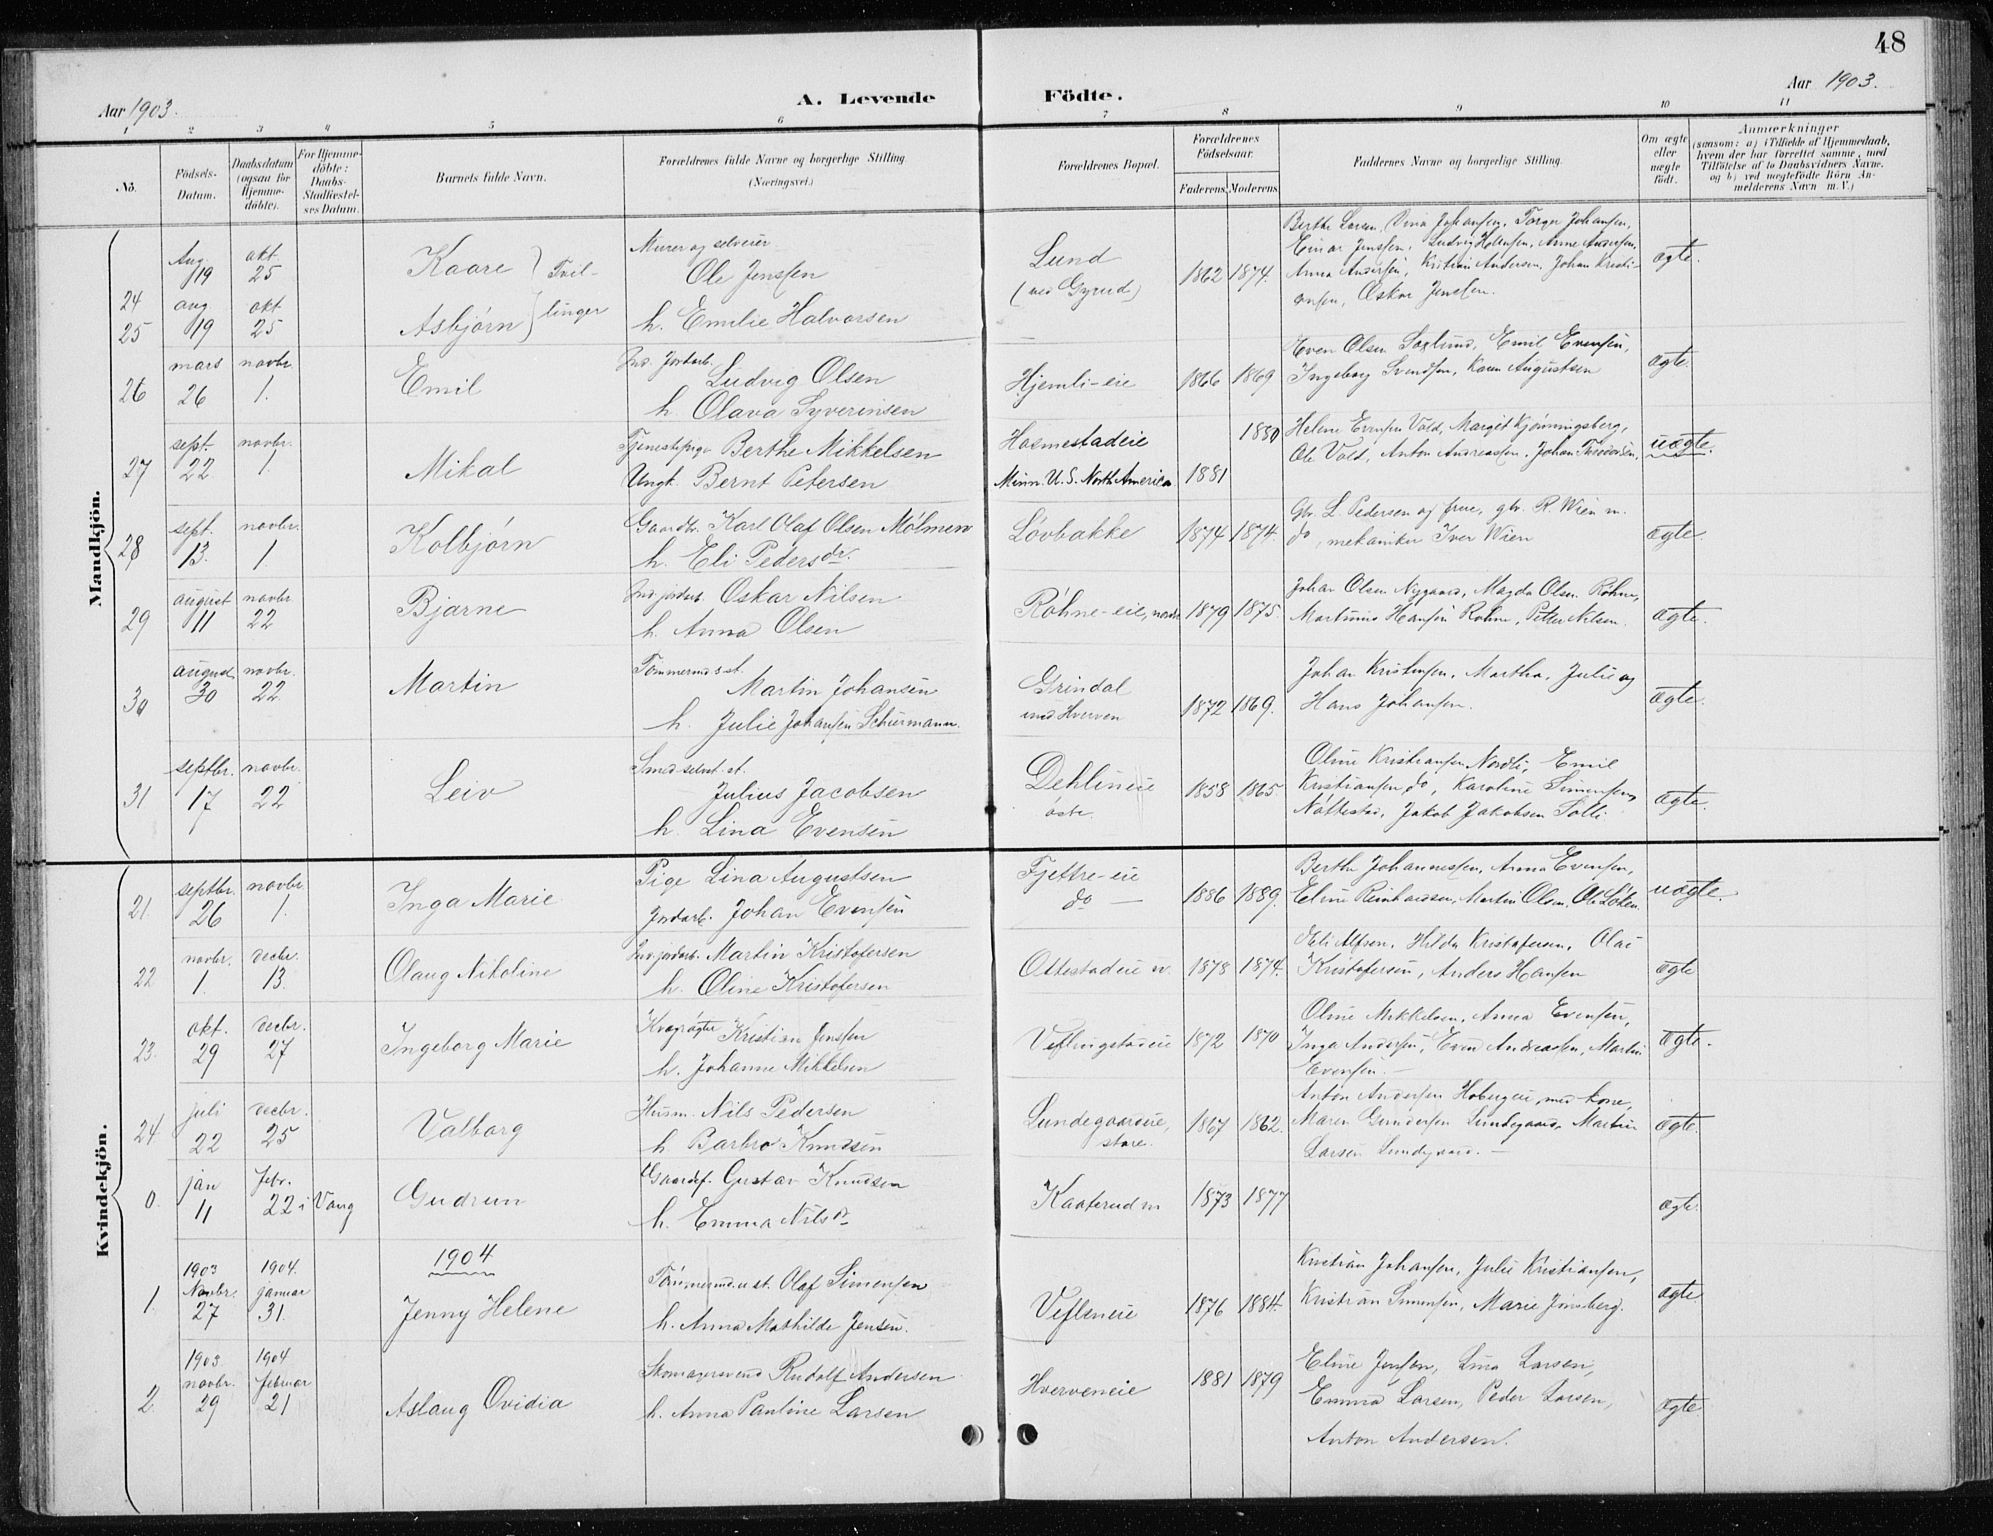 48
Aar 1903.
A. Levende Födte.
Aar 1903.
1 2 3 4 5 6 7 8 9 10 11
No. Födsels-Datum. Daabsdatum (ogsaa for Hjemme-döbte). For Hjemme-döbte: Daabs-Stadfæstel-ses Datum. Barnets fulde Navn. Forældrenes fulde Navne og borgerlige Stilling (Næringsvei.) Forældrenes Bopæl. Forældrenes Födselsaar. Faderens. Moderens Faddernes Navne og borgerlige Stilling. Om ægte eller uægte födt. Anmærkninger (saasom: a) i Tilfælde af Hjemmedaab, hvem der har forrettet samme, med Tilföielse af to Daabsvidners Navne. og b) ved uægtefödte Börn An-melderens Navn m. V.)
Mandkjön.
24 Aug 19 okt. 25 Kaare } Tvil- Murer og selveier Ole Jenssen Lund (ved Gyrud) 1862 1874. Berthe Larsen, Johansen, Torger Johansen,
Einar Jenssen, Ludvig Anne Andersen,
Anna Andersen, Kristian Andersen, Johan Kristi-
ansen, Oskar Jenssen. ægte.
25 aug 19 okt 25 Asbjørn } linger h. Emilie Halvorsen
26 mars 26 novbr 1. Emil Ind. Jordarb. Ludvig Olsen
h. Olava Syverinsen Hjemli-eie 1866 1869 Even Olsen Emil Evensen,
Ingeborg Svendsen, Karen Augustsen ægte.
27 sept. 22 novbr. 1. Mikal Tjenestepige Berthe Mikkelsen
Ungk. Bernt Petersen Hosmestadeie
Minn. U.S. North America 1881 1880 Helene Evensen Vold, Margit Kjønningsberg,
Ole Vold, Anton Andreassen, Johan uægte.
28 sept. 13. novbr. 1. Kolbjørn Gaardbr. Karl Olaf Olsen Mølmen
h. Eli Pedersdr. Løvbakke 1874 1874. Gbr. L. Pedersen og frue, gbr. R. Wien m.
do, mekaniker Iver Wien ægte.
29 august 11 novbr 22 Bjarne Ind. jordarb. Oskar Nilsen
h. Anna Olsen Røhne-eie, nordre 1879 1875. Johan Olsen Nygaard, Magda Olsen Røhne,
Martinus Hansen Røhne, Petter Nilsen. ægte.
30 august 30 novbr. 22 Martin Tømmermd st. Martin Johansen
h. Julie Johansen Schürmann. Grindal
und. Hverven 1872 1869. Johan Kristensen, Martha, Julie og
Hans Johansen. ægte.
31 septbr. 17 novbr. 22 Leiv Smed Julius Jacobsen
h. Lina Evensen Dehlineie
østre 1858 1865. Oline Kristiansen Nordli, Emil
Kristiansen do, Karoline Simensen,
Nøttestad, Jakob Jakobsen Solli. ægte.
Kvindekjön.
21. septbr. 26 novbr 1. Inga Marie Pige Lina Augustsen
Jordarb. Johan Evensen Fjettre-eie
do — 1886 1889. Berthe Johannessen, Anna Evensen,
Eline Reinhardsen, Martin Olsen, Ole Løken. uægte.
22 novbr. 1. decbr. 13. Olaug Nikoline Ind. jordarb. Martin Kristofersen
h. Oline Kristofersen Ottestadeie v. 1878 1874. Alfsen, Hilda Kristofersen, Olai
Kristofersen, Anders Hansen ægte
23. okt. 29 decbr. 27 Ingeborg Marie Kvægrøgter Kristian Jenssen
h. Johanne Mikkelsen Veflingstadeie 1872 1870 Oline Mikkelsen, Anna Evensen,
Inga Andersen, Even Andreassen, Martin
Evensen. — ægte.
24 juli 22 decbr. 25 Valborg Husm. Nils Pedersen
h. Barbro Knudsen Lundegaardeie,
store. 1867 1862. Anton Andersen Hobergeie, med kone,
Maren Gundersen Lundegaard, Martin
Larsen Lundgaard. — ægte.
0. jan 11 febr. 22 i Vang Gudrun Gaardf. Gustav Knudsen
h. Emma Nilsdr. Kaaterud m 1873 1877 ægte.
1904
1. 1903 Novbr. 27 1904. januar 31. Jenny Helene Tømmermd. u st. Olaf Simensen
h. Anna Mathilde Jensen. Vefleneie 1876 1884. Kristian Johansen, Julie Kristiansen,
Kristian Simensen, Marie Jønsberg. ægte
2. 1903. novbr. 29 1904 februar 21 Aslaug Ovidia Skomagersvend Rudolf Andersen
h. Anna Pauline Larsen Hverveneie 1881 1879 Eline Jensen, Lina Larsen,
Emma Larsen, Peder Larsen,
Anton Andersen. ægte